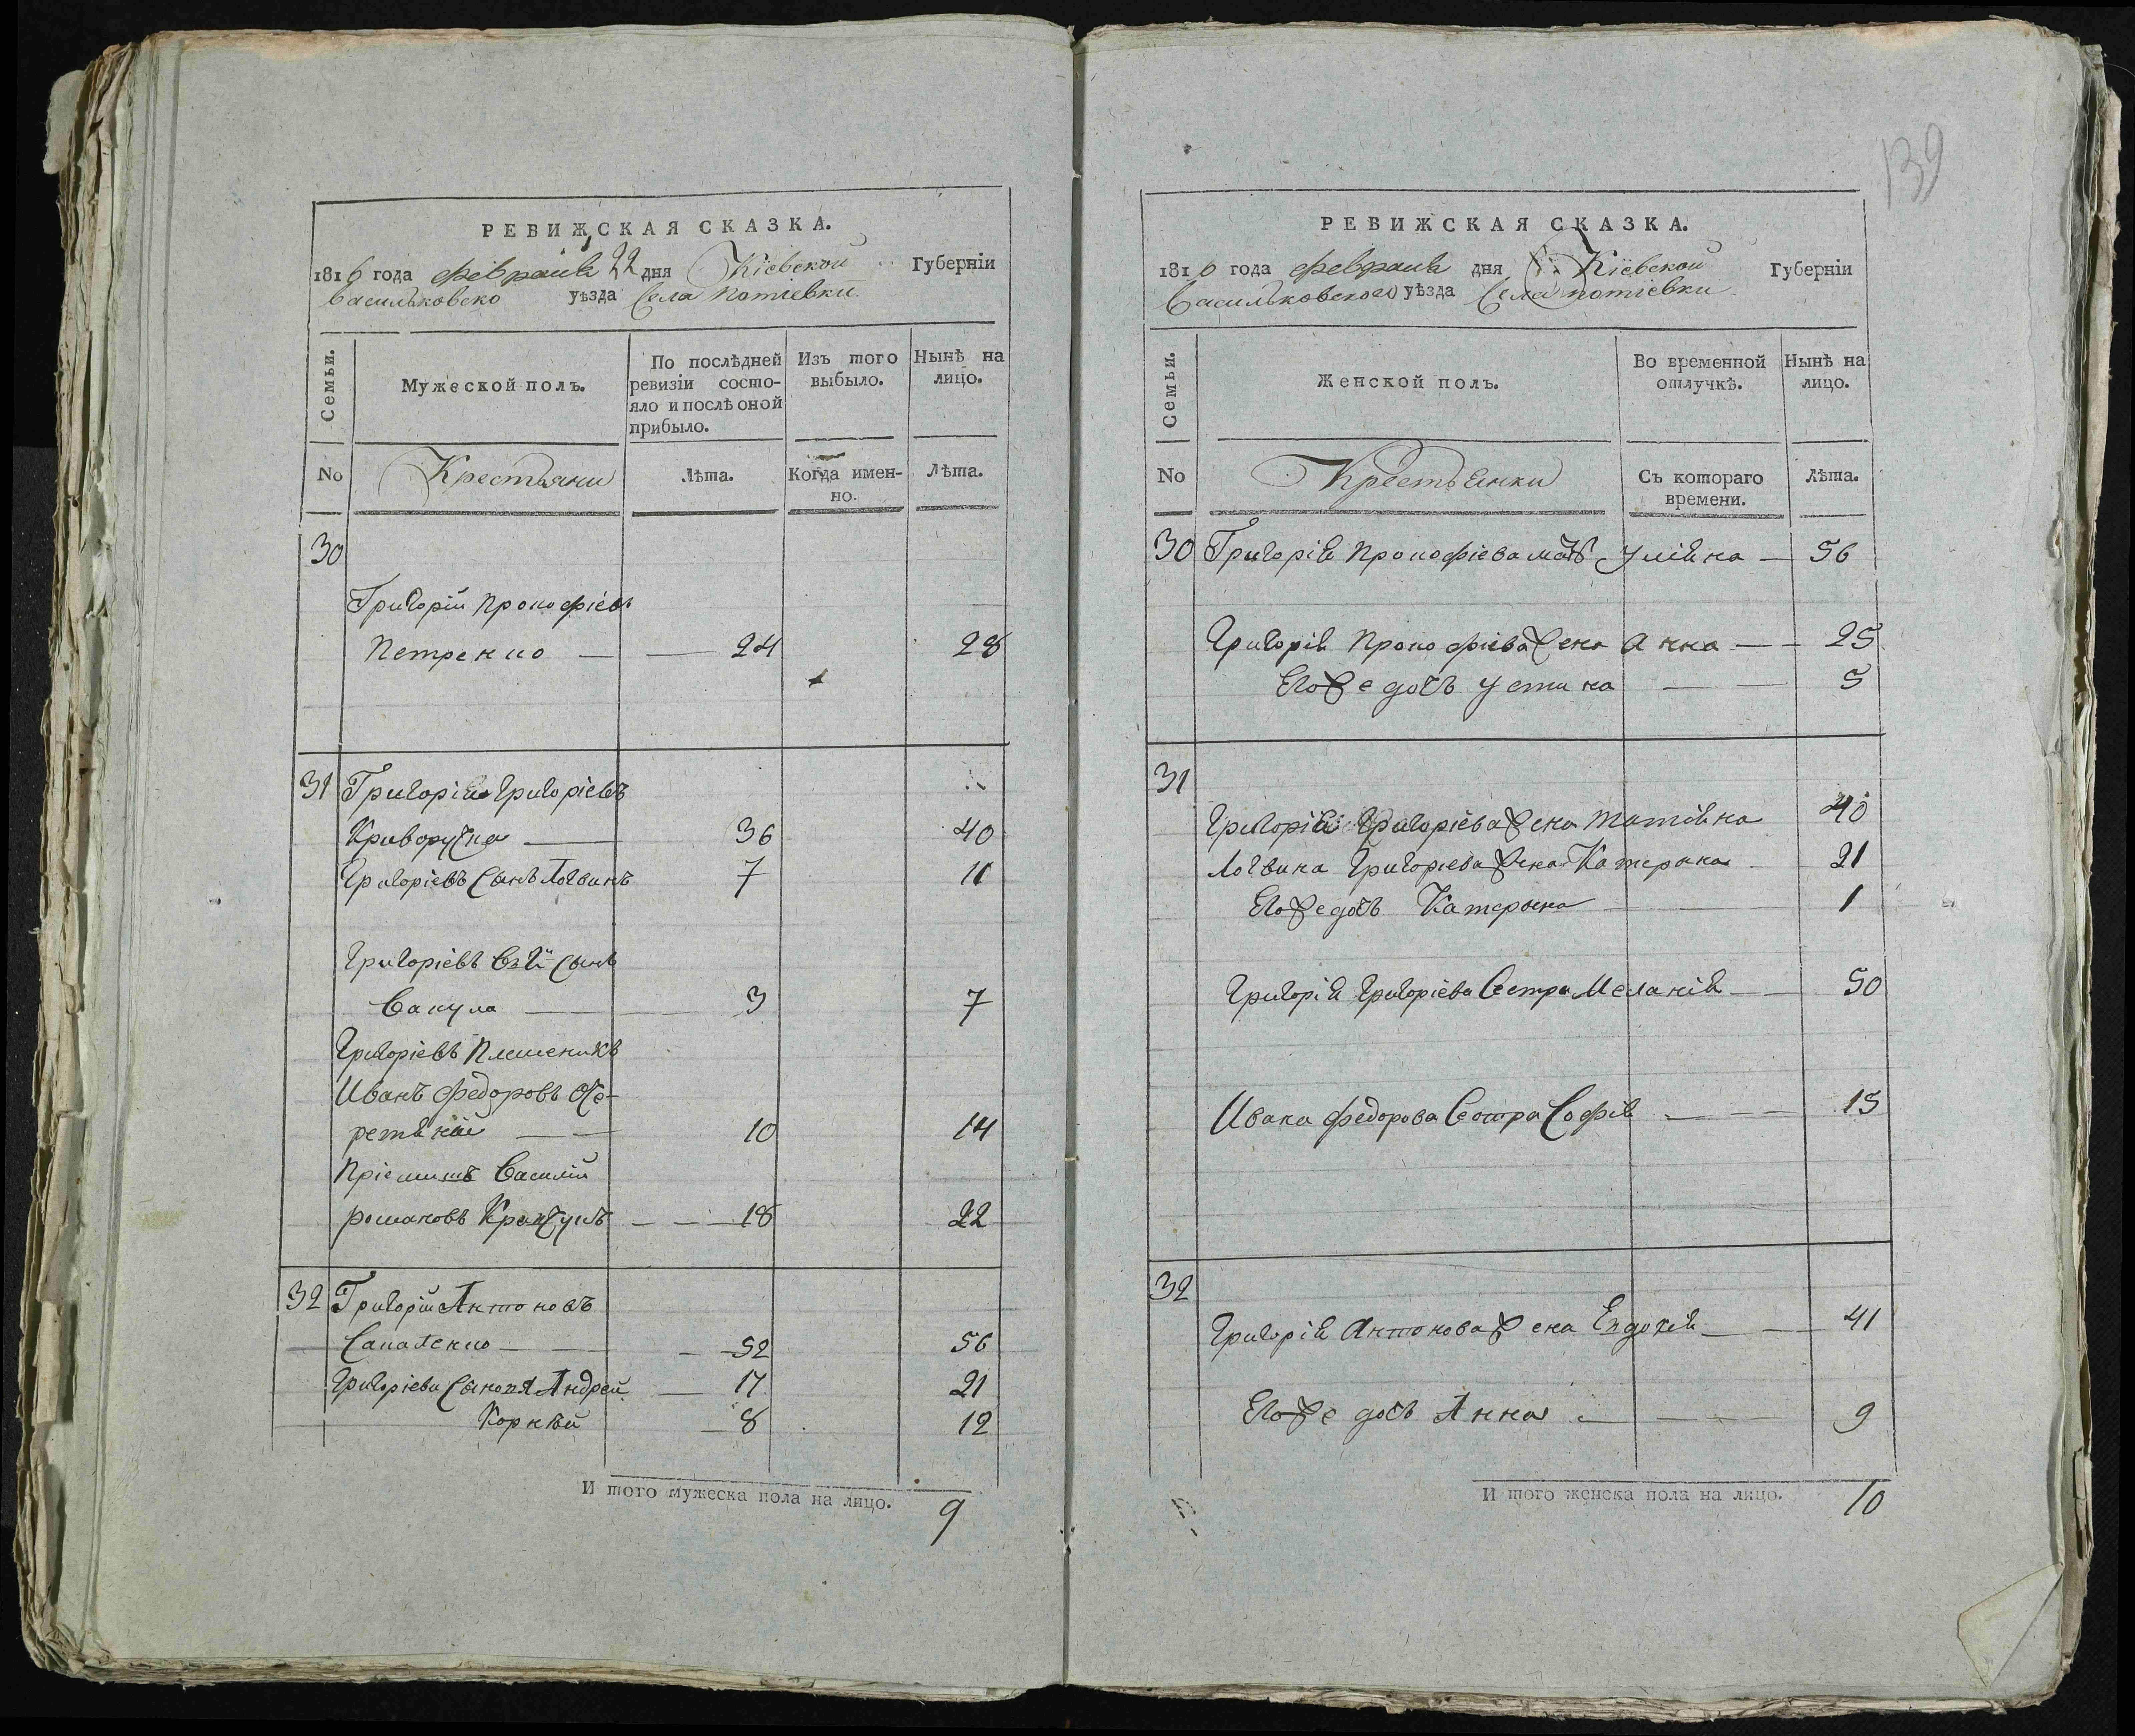 РЕВИЖСКАЯ СКАЗКА.
1816 года февраля 22 дня Кіевской Губерніи
Васильковско уѣзда Села Потіевки
Семьи.
Мужеской полъ.
По послѣдней ревизіи состо-
яло и послѣ оной
прибыло.
Изъ того
выбыло.
Нынѣ на
лицо.
No
Крестьяни
Лѣта.
Когда имен-
но.
Лѣта.
30
Григорій Прокофіевъ
Петренко 24 28
31 Григорій Григоріевъ
Криворучка 36 40
Григоріевъ Сынъ Логвинъ 7 11
Григоріевъ 2й Сынъ
Вакула 3 7
Григоріевъ Племеникъ
Иванъ Федоровъ
10 14
Пріемышъ Василій
Романовъ 18 22
32 Григорій Антоновъ
52 56
Григоріеви Сыновя Андрей 17 21
Корнѣй 8 12
И того мужеска пола на лицо. 9
139
РЕВИЖСКАЯ СКАЗКА.
1816 года февраля дня Кіевской Губерніи
Васильковского уѣзда Села Потіевки
Семьи.
Женской полъ.
Во временной
отлучкѣ.
Нынѣ на
лицо.
No
Крестьянки
Съ котораго
времени.
Лѣта.
30 Григорія Прокофіева мать Уліяна 56
Григорія Прокофіева жена Анна 25
Его же дочь Устина 5
31
Григорія Григоріева жена Татіяна 40
Логвина Григоріева жена Катерына 21
Его же дочь Катерына 1
Григорія Григоріева Сестра Меланія 50
Ивана Федорова Сестра Софія 15
32
Григорія Антонова жена Евдокія 41
Его же дочь Анна 9
И того женска пола на лицо. 10